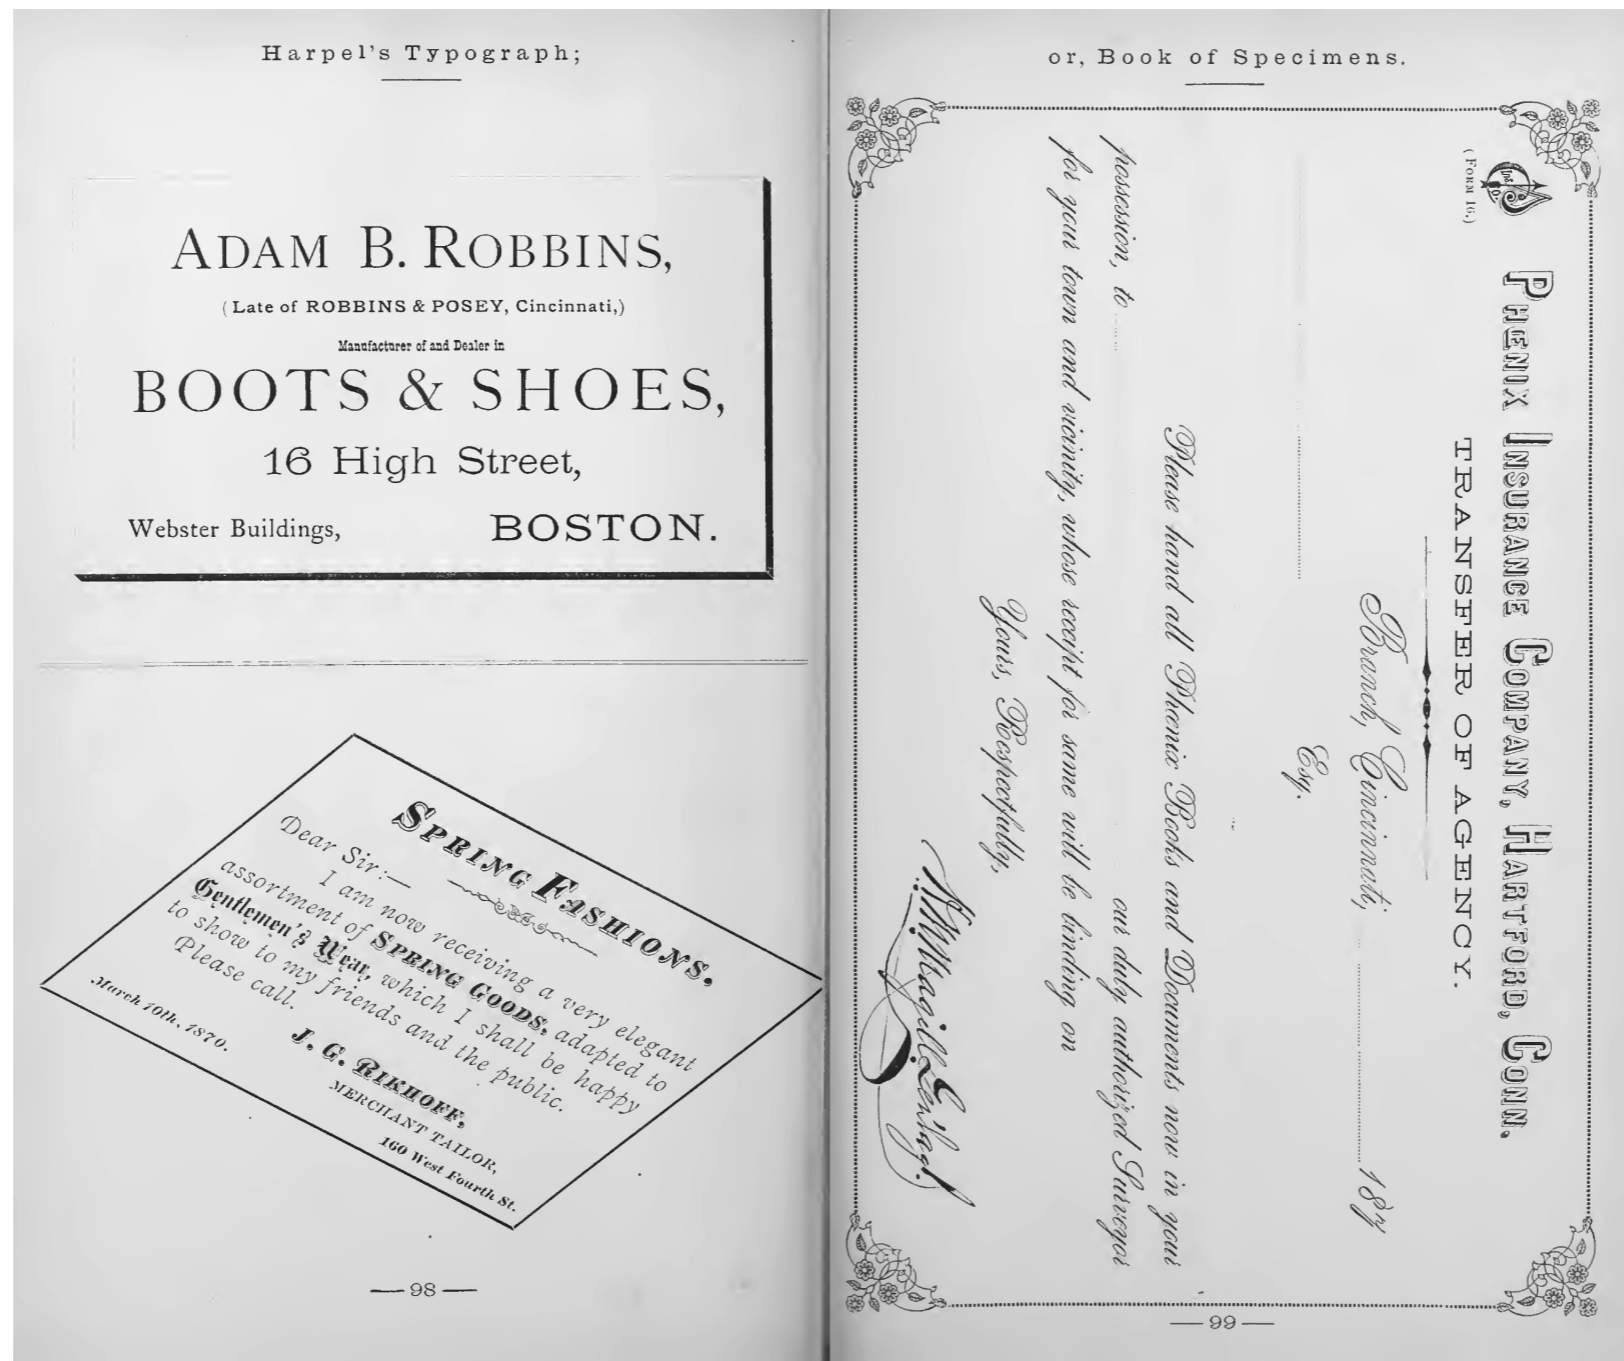 Harpel's Typograph;
ADAM B. ROBBINS,
(Late of ROBBINS & POSEY, Cincinnati,)
Manufacturer of and Dealer in
BOOTS & SHOES,
16 High Street,
Webster Buildings, BOSTON.
SPRING FASHIONS.
Dear Sir:—
I am now receiving a very elegant
assortment of SPRING GOODS, adapted to
Gentlemen's Wear, which I shall be happy
to show to my friends and the public.
Please call.
J. G. RIKHOFF,
MERCHANT TAILOR,
March 10th, 1870. 160 West Fourth St.
— 98 —
or, Book of Specimens.
(FORM 16.)
PHENIX INSURANCE COMPANY, HARTFORD, CONN.
TRANSFER OF AGENCY.
Branch, Cincinnati, 187
Esq.
Please hand all Phœnix Books and Documents now in your
possession, to our duly authorized Surveyor
for your town and vicinity, whose receipt for same will be binding on
Yours, Respectfully,
Magill Gen'l Agt.
— 99 —